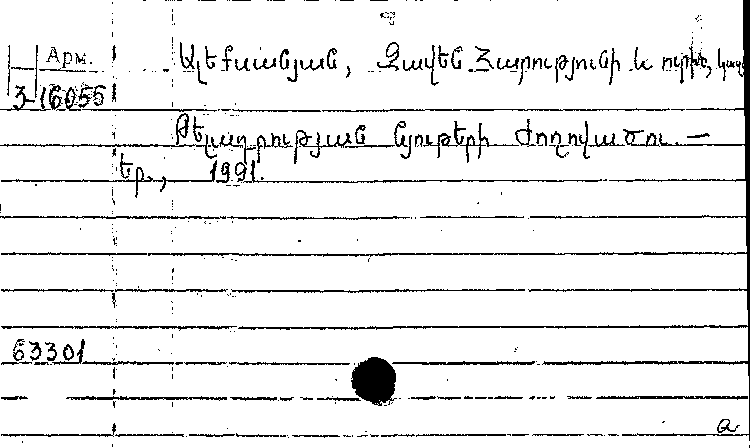 Арм.
Ալեքսանյան, Զավեն Հարությունի և ուրիշ, կազ
3-16055
Թելադրության նյութերի ժողովածու. —
Եր., 1991.
63301
a